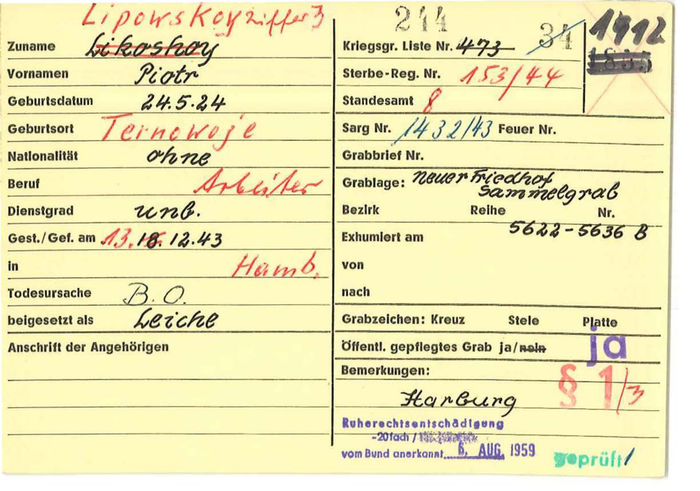 Lipowskoy ziffer 3
Zuname Likoshoy
Vornamen Piotr
Geburtsdatum 24.5.24
Geburtsort Ternowoje
Nationalität ohne
Beruf Arbeiter
Dienstgrad unb.
Gest./Gef. am 13. 18.12.43
in Hamb.
Todesursache B.O.
beigesetzt als Leiche
Anschrift der Angehörigen
244
34
1912
Kriegsgr. Liste Nr. 473
Sterbe-Reg. Nr. 153/44
Standesamt 8
Sarg Nr. 1432/43 Feuer Nr.
Grabbrief Nr.
Grablage: Neuer Friedhof
Sammelgrab
Bezirk Reihe Nr.
5622-5636 B
Exhumiert am
von
nach
Grabzeichen: Kreuz Stele Platte
Öffentl. gepflegtes Grab ja/nein ja
Bemerkungen: § 1/3
Harburg
Ruherechtsentschädigung
-20fach /
vom Bund anerkannt 6. AUG. 1959
geprüft